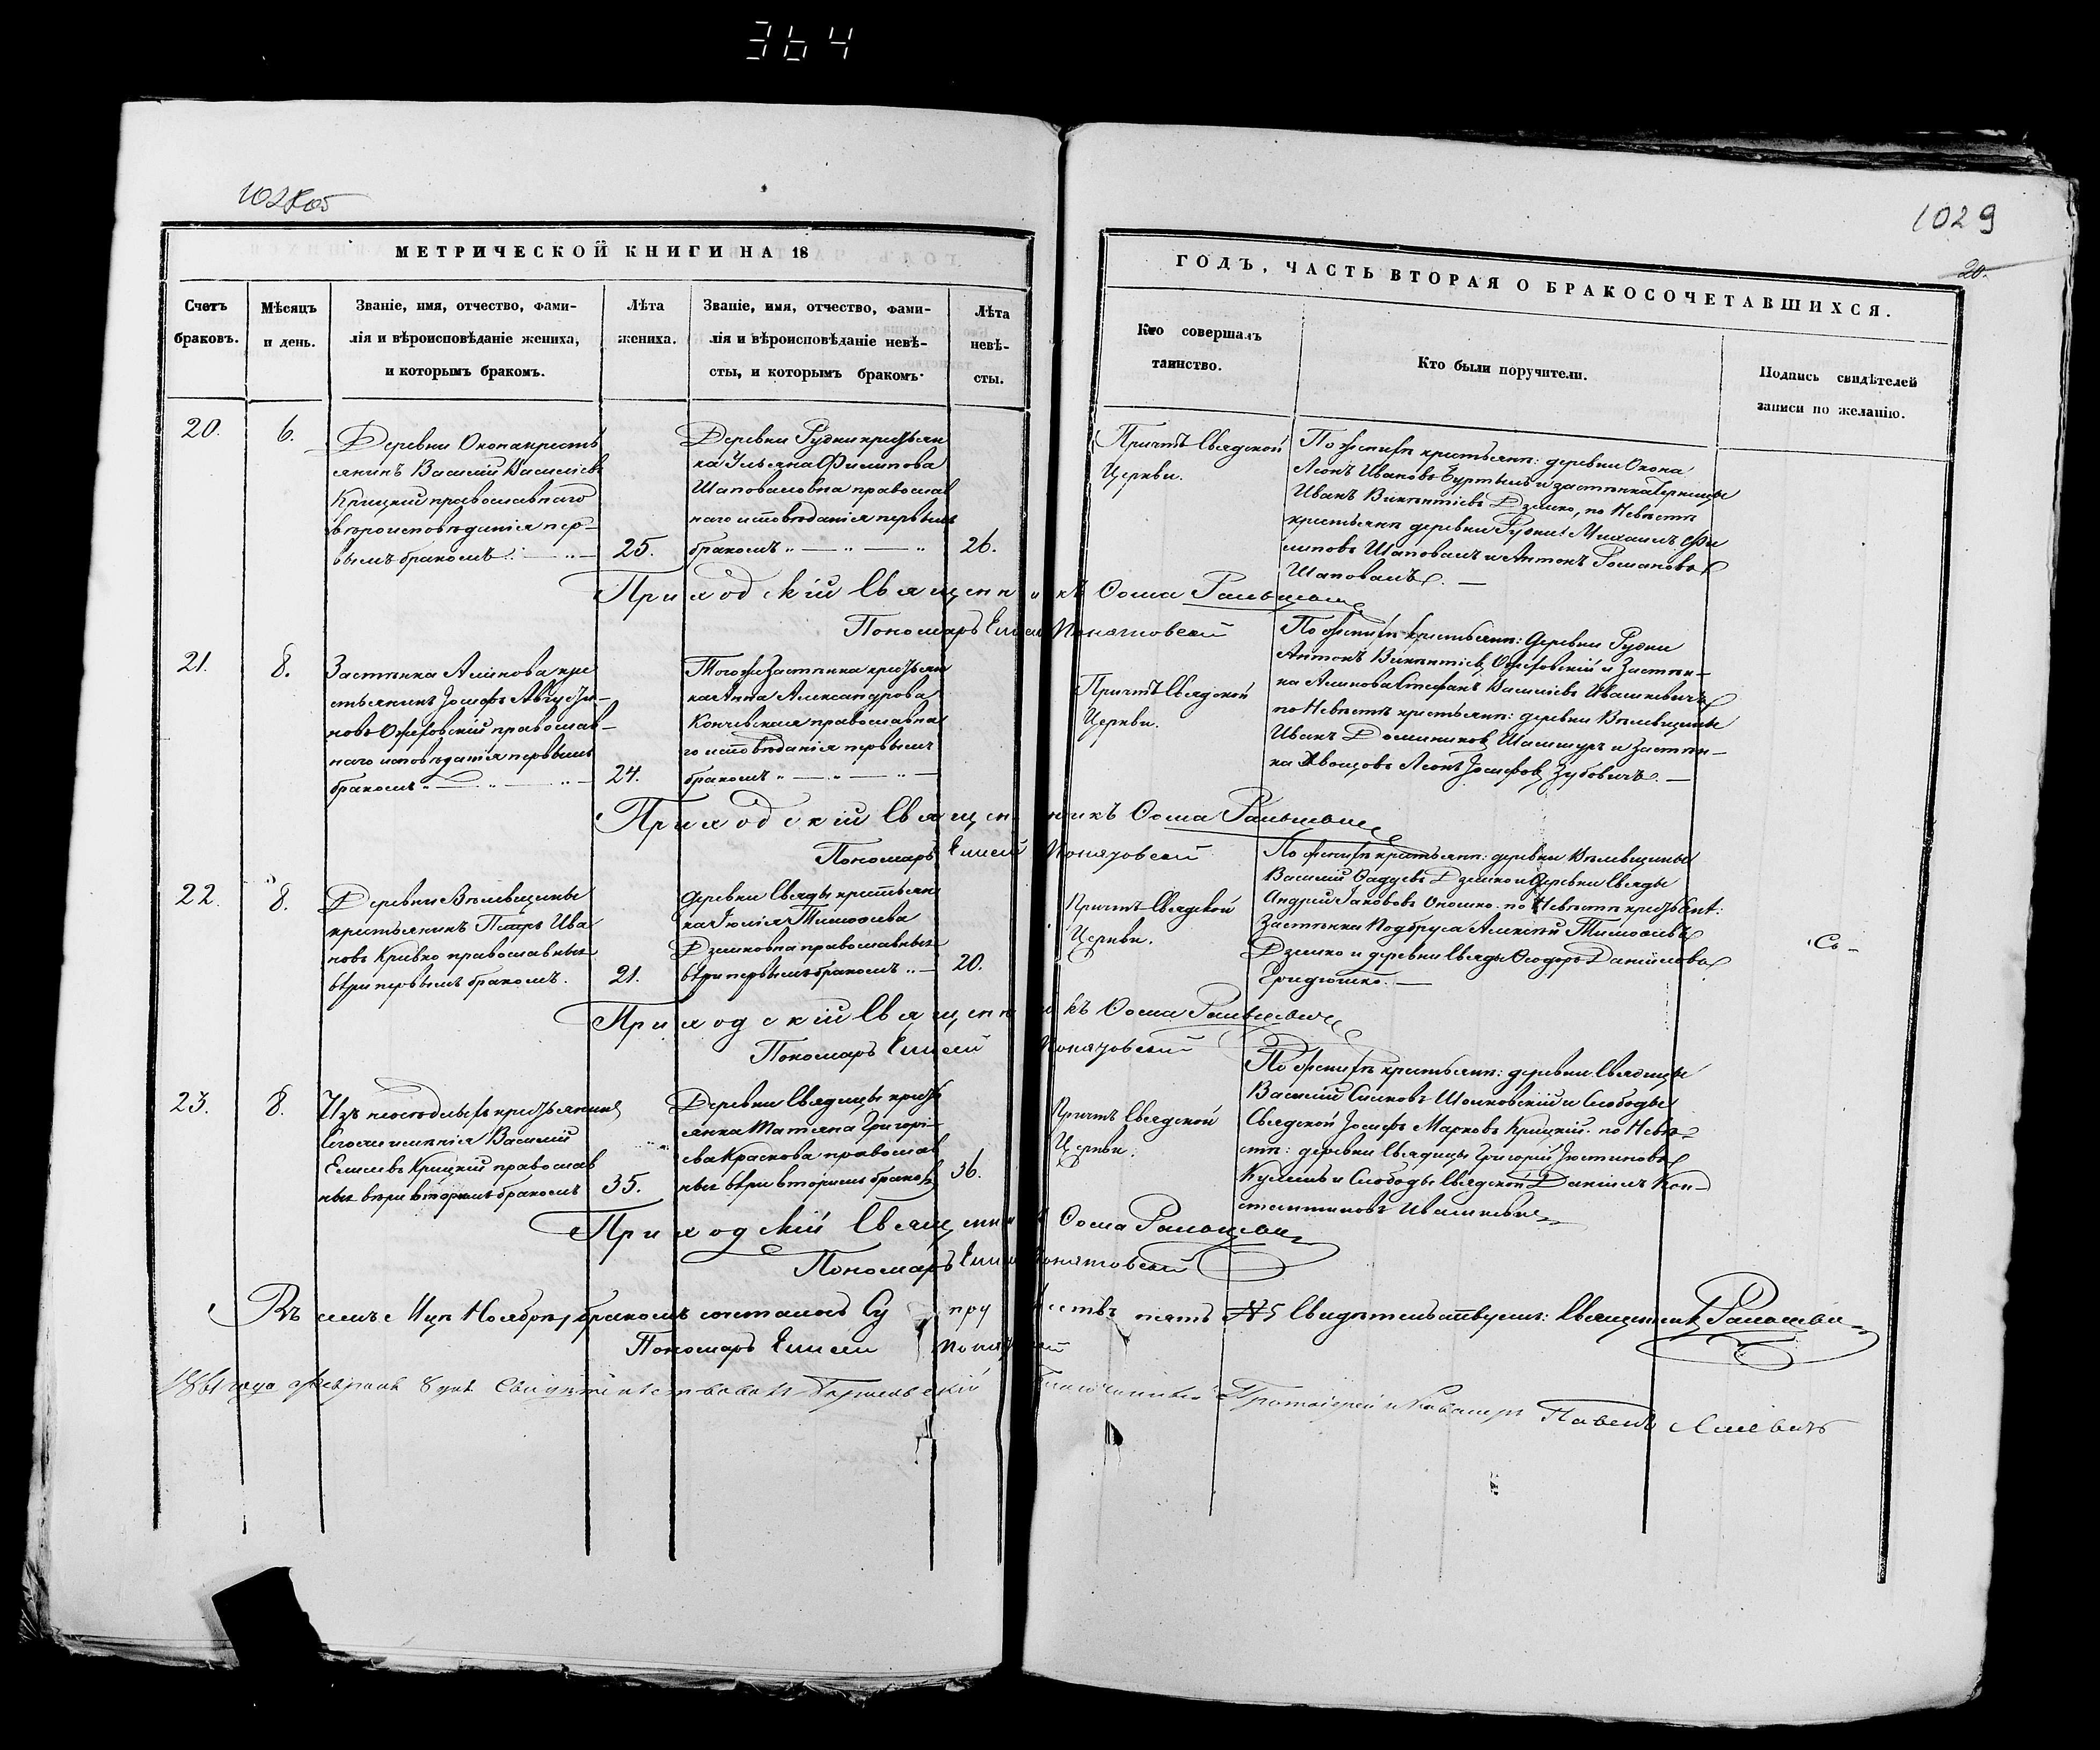 364
1028об
1029
20.
МЕТРИЧЕСКОЙ КНИГИ НА 18
ГОДЪ, ЧАСТЬ ВТОРАЯ О БРАКОСОЧЕТАВШИХСЯ.
Счетъ
браковъ.
Мѣсяцъ
и день.
Званіе, имя, отчество, фами-
лія и вѣроисповѣданіе жениха,
и которымъ бракомъ.
Лѣта
жениха.
Званіе, имя, отчество, фами-
лія и вѣроисповѣданіе невѣ-
сты, и которымъ бракомъ.
Лѣта
невѣ-
сты.
Кто совершалъ
таинство.
Кто были поручители.
Подпись свидѣтелей
записи по желанію.
20.
6.
Деревни Окопа кресть
янинъ Василій Василіевъ
Крицкій православнаго
вѣроисповѣданія пер-
вымъ бракомъ
25.
Деревни Рудни крестьян
ка Ульяна Филипова
Шаповаловна православ
наго исповѣданія первымъ
бракомъ
26.
Причтъ Свядской
Церкви.
По женихѣ крестьяне: деревни Окопа
Леонъ Ивановъ и застѣнка
Иванъ Викентіевъ Дземко, по Невѣстѣ
крестьяне деревни Рудни: Михаилъ Фи
липовъ Шаповалъ и Антонъ Романовъ
Шаповалъ.
Приходскій Священникъ Ѳома
Пономарь Елисей Понятовскій
21.
8.
Застѣнка Алинова кре
стьянинъ Іосифъ Августи-
новъ Ожеховскій православ-
наго исповѣданія первымъ
бракомъ
24.
Того же Застѣнка крестьян
ка Анна Александрова
Кончевская православна
го исповѣданія первымъ
бракомъ
Причтъ Свядской
Церкви.
По женихѣ крестьяне: Деревни Рудни
Антонъ Викентіевъ Ожеховскій и Застѣн-
ка Алинова Стефанъ Василіевъ Ивашкевичъ
по Невѣстѣ крестьяне: деревни
Иванъ Доминиковъ и Застѣн-
ка Хвощовъ Леонъ Іосифовъ Зубовичъ.
Приходскій Священникъ Ѳома
Пономарь Елисей Понятовскій
22.
8.
Деревни
крестьянинъ Петръ Ива
новъ Кривко православныя
вѣры первымъ бракомъ.
21.
Деревни Свяды крестьян
ка Юлія Тимоѳеева
Дземковна православныя
вѣры первымъ бракомъ
20.
Причтъ Свядской
Церкви.
По женихѣ крестьяне: деревни
Василій Дземко и Деревни Свяды
Андрей Іакововъ по Невѣстѣ крестьяне:
Застѣнка Алексѣй Тимоѳеевъ
Дземко и деревни Свяды Ѳеодоръ Даніиловъ
Съ-
Приходскій Священникъ Ѳома
Пономарь Елисей Понятовскій
23.
8.
Изъ неосѣдлыхъ крестьянинъ
имѣнія Василій
Елисеевъ Крицкій православ
ныя вѣры вторымъ бракомъ
35.
Деревни Свядицы кресть
янка Татьяна Григорі-
ева Краскова православ
ныя вѣры вторымъ бракомъ
36.
Причтъ Свядской
Церкви.
По женихѣ крестьяне: деревни Свядицы
Василій и Слободы
Свядской Іосифъ Марковъ Крицкій. по Невѣ-
стѣ: деревни Свядицы Григорій Іустиновъ
и Слободы Свядской Даніилъ Кон-
стантиновъ Ивашкевичъ
Приходскій Священникъ Ѳома
Пономарь Елисей Понятовскій
Въ семъ Мцѣ Ноябрѣ, бракомъ сочеталось Супружествъ пять № 5 Свидѣтельствуемъ: Священникъ
Пономарь Елисей Понятовскій
1861 года Февраля 8 дня Свидѣтельствовалъ Благочинный Протоіерей и Кавалеръ Павелъ